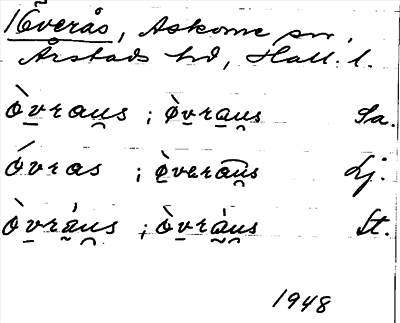 16 Överås, Askome sn,
Årstads hd, Hall. l.
òvrau̯s ; òvrau̯s Sa.
óvras ; òverau̯s Lj.
òvràu̯s ; òvràu̯s St.
1948